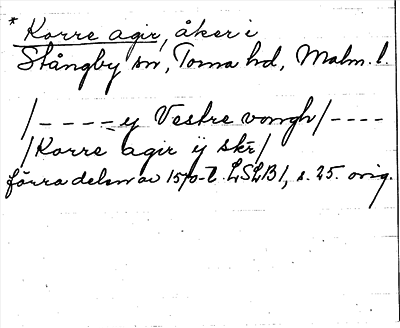 * Korre agir, åker i
Stångby sn, Torna hd, Malm. l.
/----- y Vestre vongh/----
/Korre agir ij skr/
förra delen av 1570-t. LSLB1, s. 25. orig.